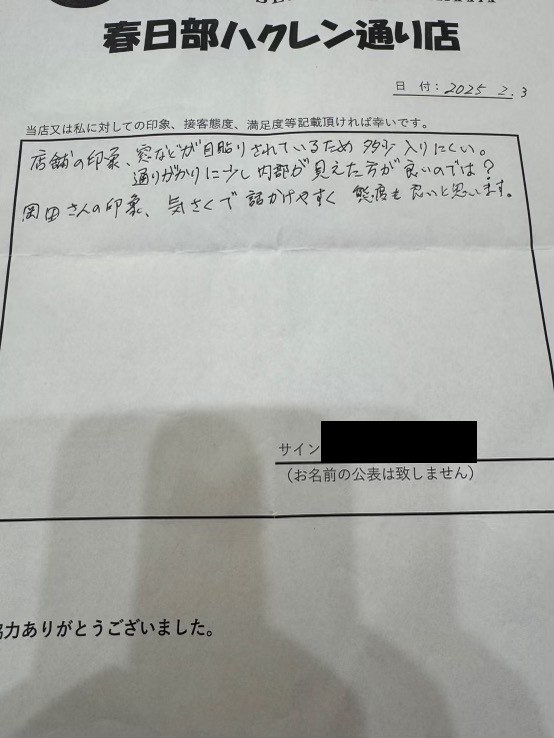 春日部ハクレン通り店
日 付： 2025 2. 3
当店又は私に対しての印象、接客態度、満足度等記載頂ければ幸いです。
店舗の印象、窓などが目貼りされているため 多少 入りにくい。
通りがかりに少し内部が見えた方が良いのでは？
岡田さんの印象、気さくで 話かけやすく 態度も 良いと思います。
サイン
（お名前の公表は致しません）
力ありがとうございました。